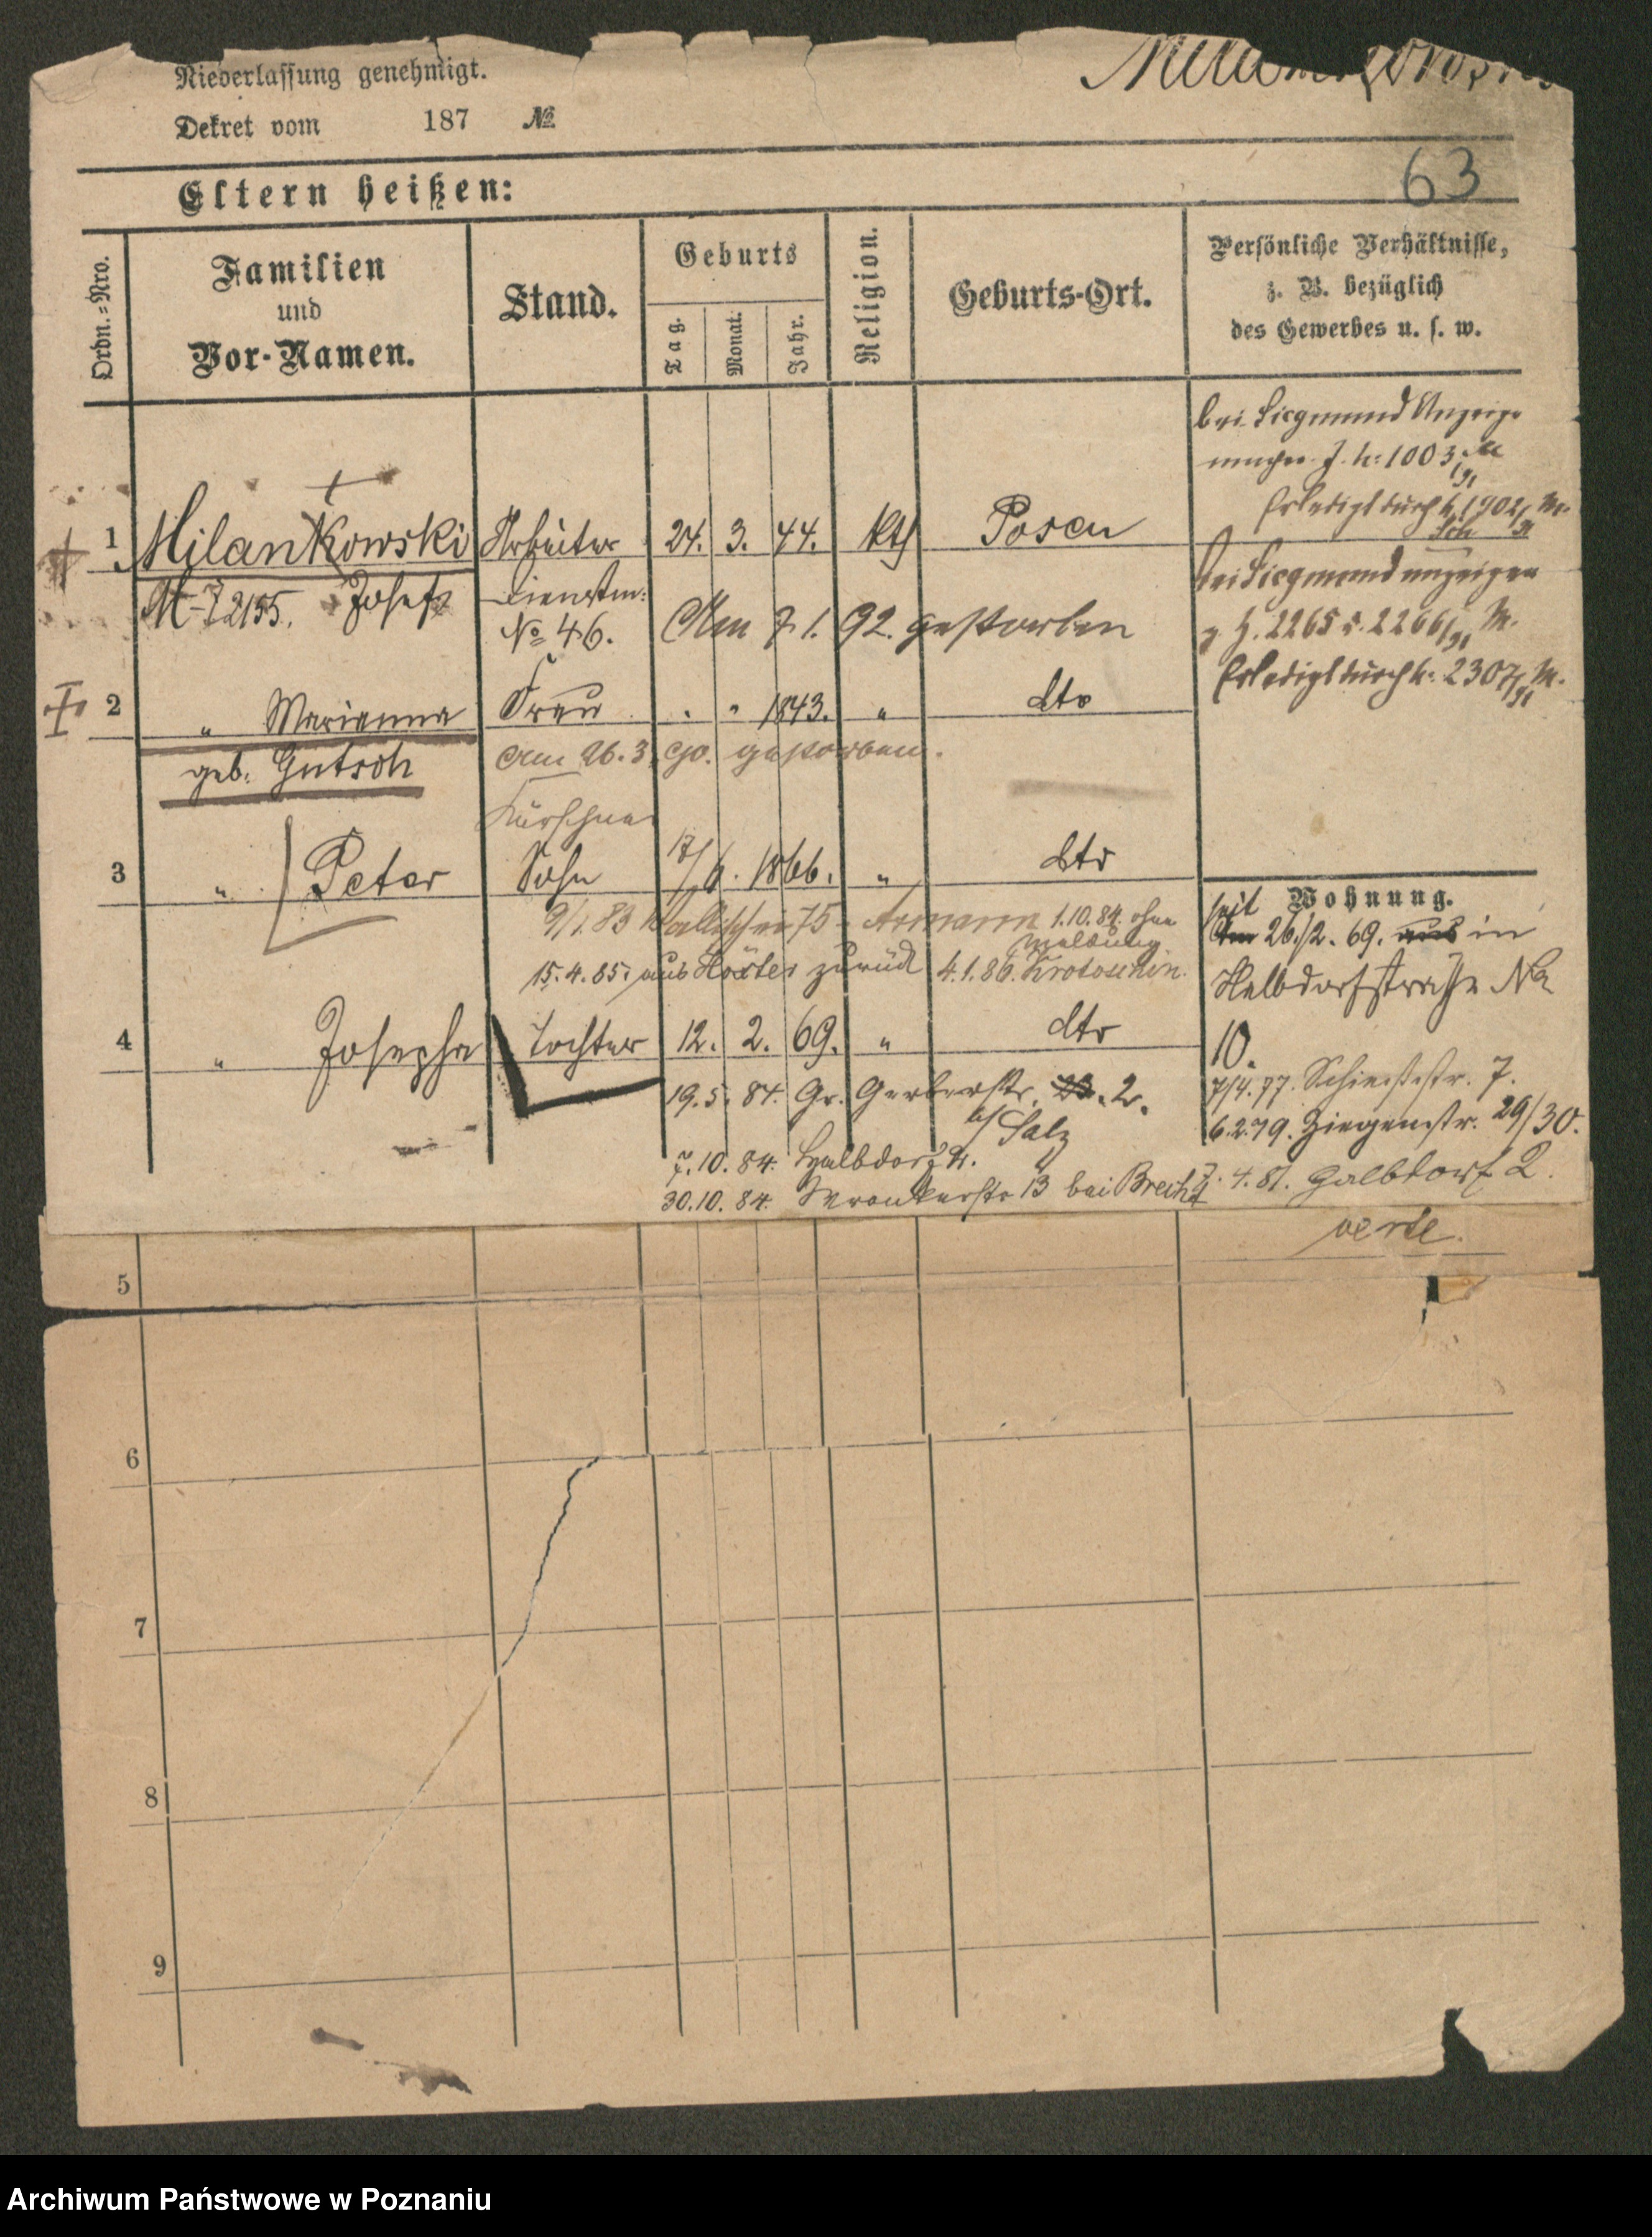 Niederlassung genehmigt.
Dekret vom 187 №
Eltern heißen:
63
Ordn.=Nro.
Familien
und
Vor-Namen.
Stand.
Geburts
Tag.
Monat.
Jahr.
Religion.
Geburts-Ort.
Persönliche Verhältnisse,
z. B. bezüglich
des Gewerbes u. s. w.
bei Siegmund Anzeige
1003
Erledigt durch 1902/ M.
1 Milankowski Arbeiter 24. 3. 44. kth Posen
bei Siegmund anzeigen
M-72155. Josef Dienstm:
№ 46. Am 7 1. 92. gestorben
2265 2266/91 M.
Erledigt durch 2307/91 M.
2 " Marianna Frau " " 1843. " dto
geb. Gutsch Am 26. 3. 90. gestorben.
Kürschner
3 " Peter Sohn 17/6. 1866. " dto
9/1.83 Wallischei 75 1.10.84. ohne
Meldung
15.4.85. aus zurück 4.1.86. Krotoschin.
Wohnung.
seit
Am 26./2. 69. aus in
Halbdorfstrasse No
10.
4 " Josepha Tochter 12. 2. 69. " dto
19.5. 84. Gr. Gerberstr. 2.
b/ Salz
7/4.77. Schiessstr. 7.
6.2.79. Ziegenstr. 29/30.
7.10.84. Halbdorf
30.10.84. Wronkerstr 13 bei Brecht
7. 4. 81. Halbdorf 2.
verte.
5
6
7
8
9
Archiwum Państwowe w Poznaniu